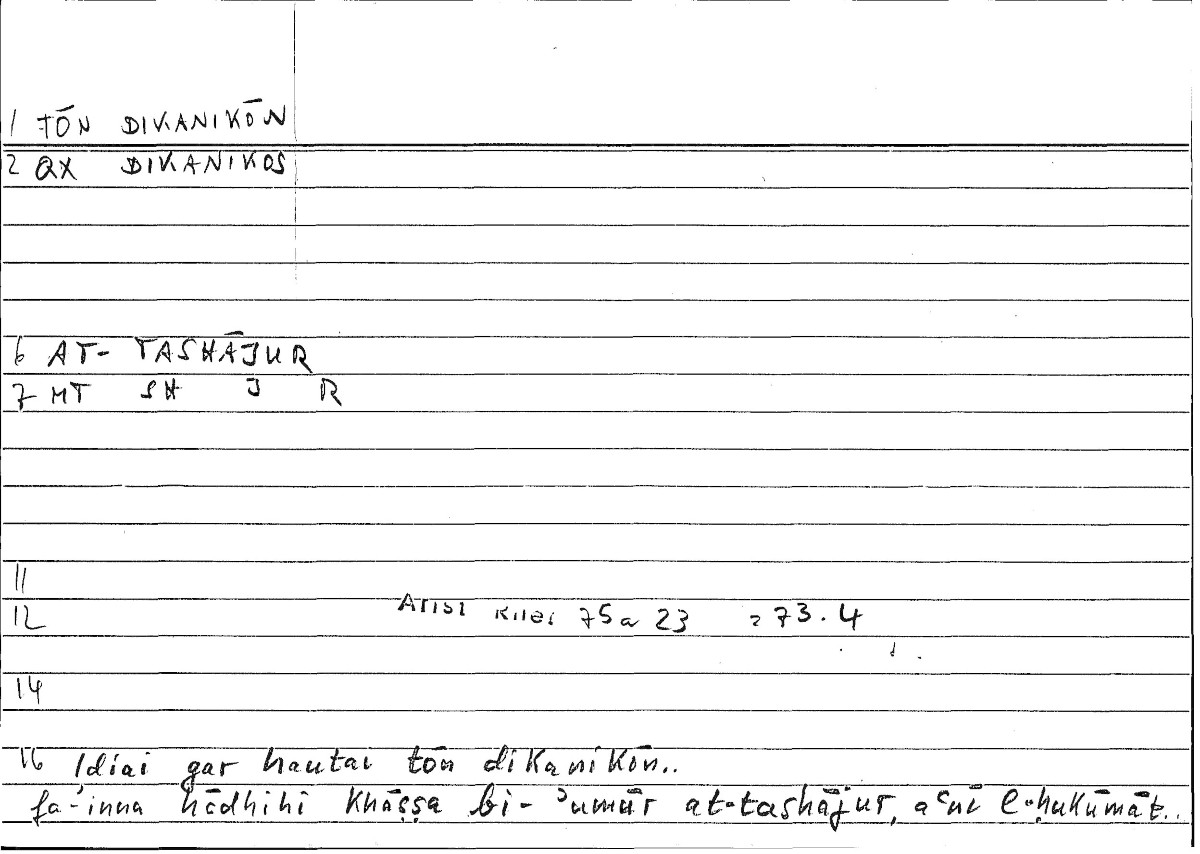 1 TŌN DIKANIKŌN
2 QX DIKANIKOS
6 AT- TASHĀJUR
7 MT SH J R
11
12 Arist Rhet 75a 23 = 73.4
14
16 Idiai gar hautai tōn dikanikōn..
fa-'inna hādhihi khāṣṣa bi- ʾumūr at-tashājur, aʿnī l-ḥukūmāt..